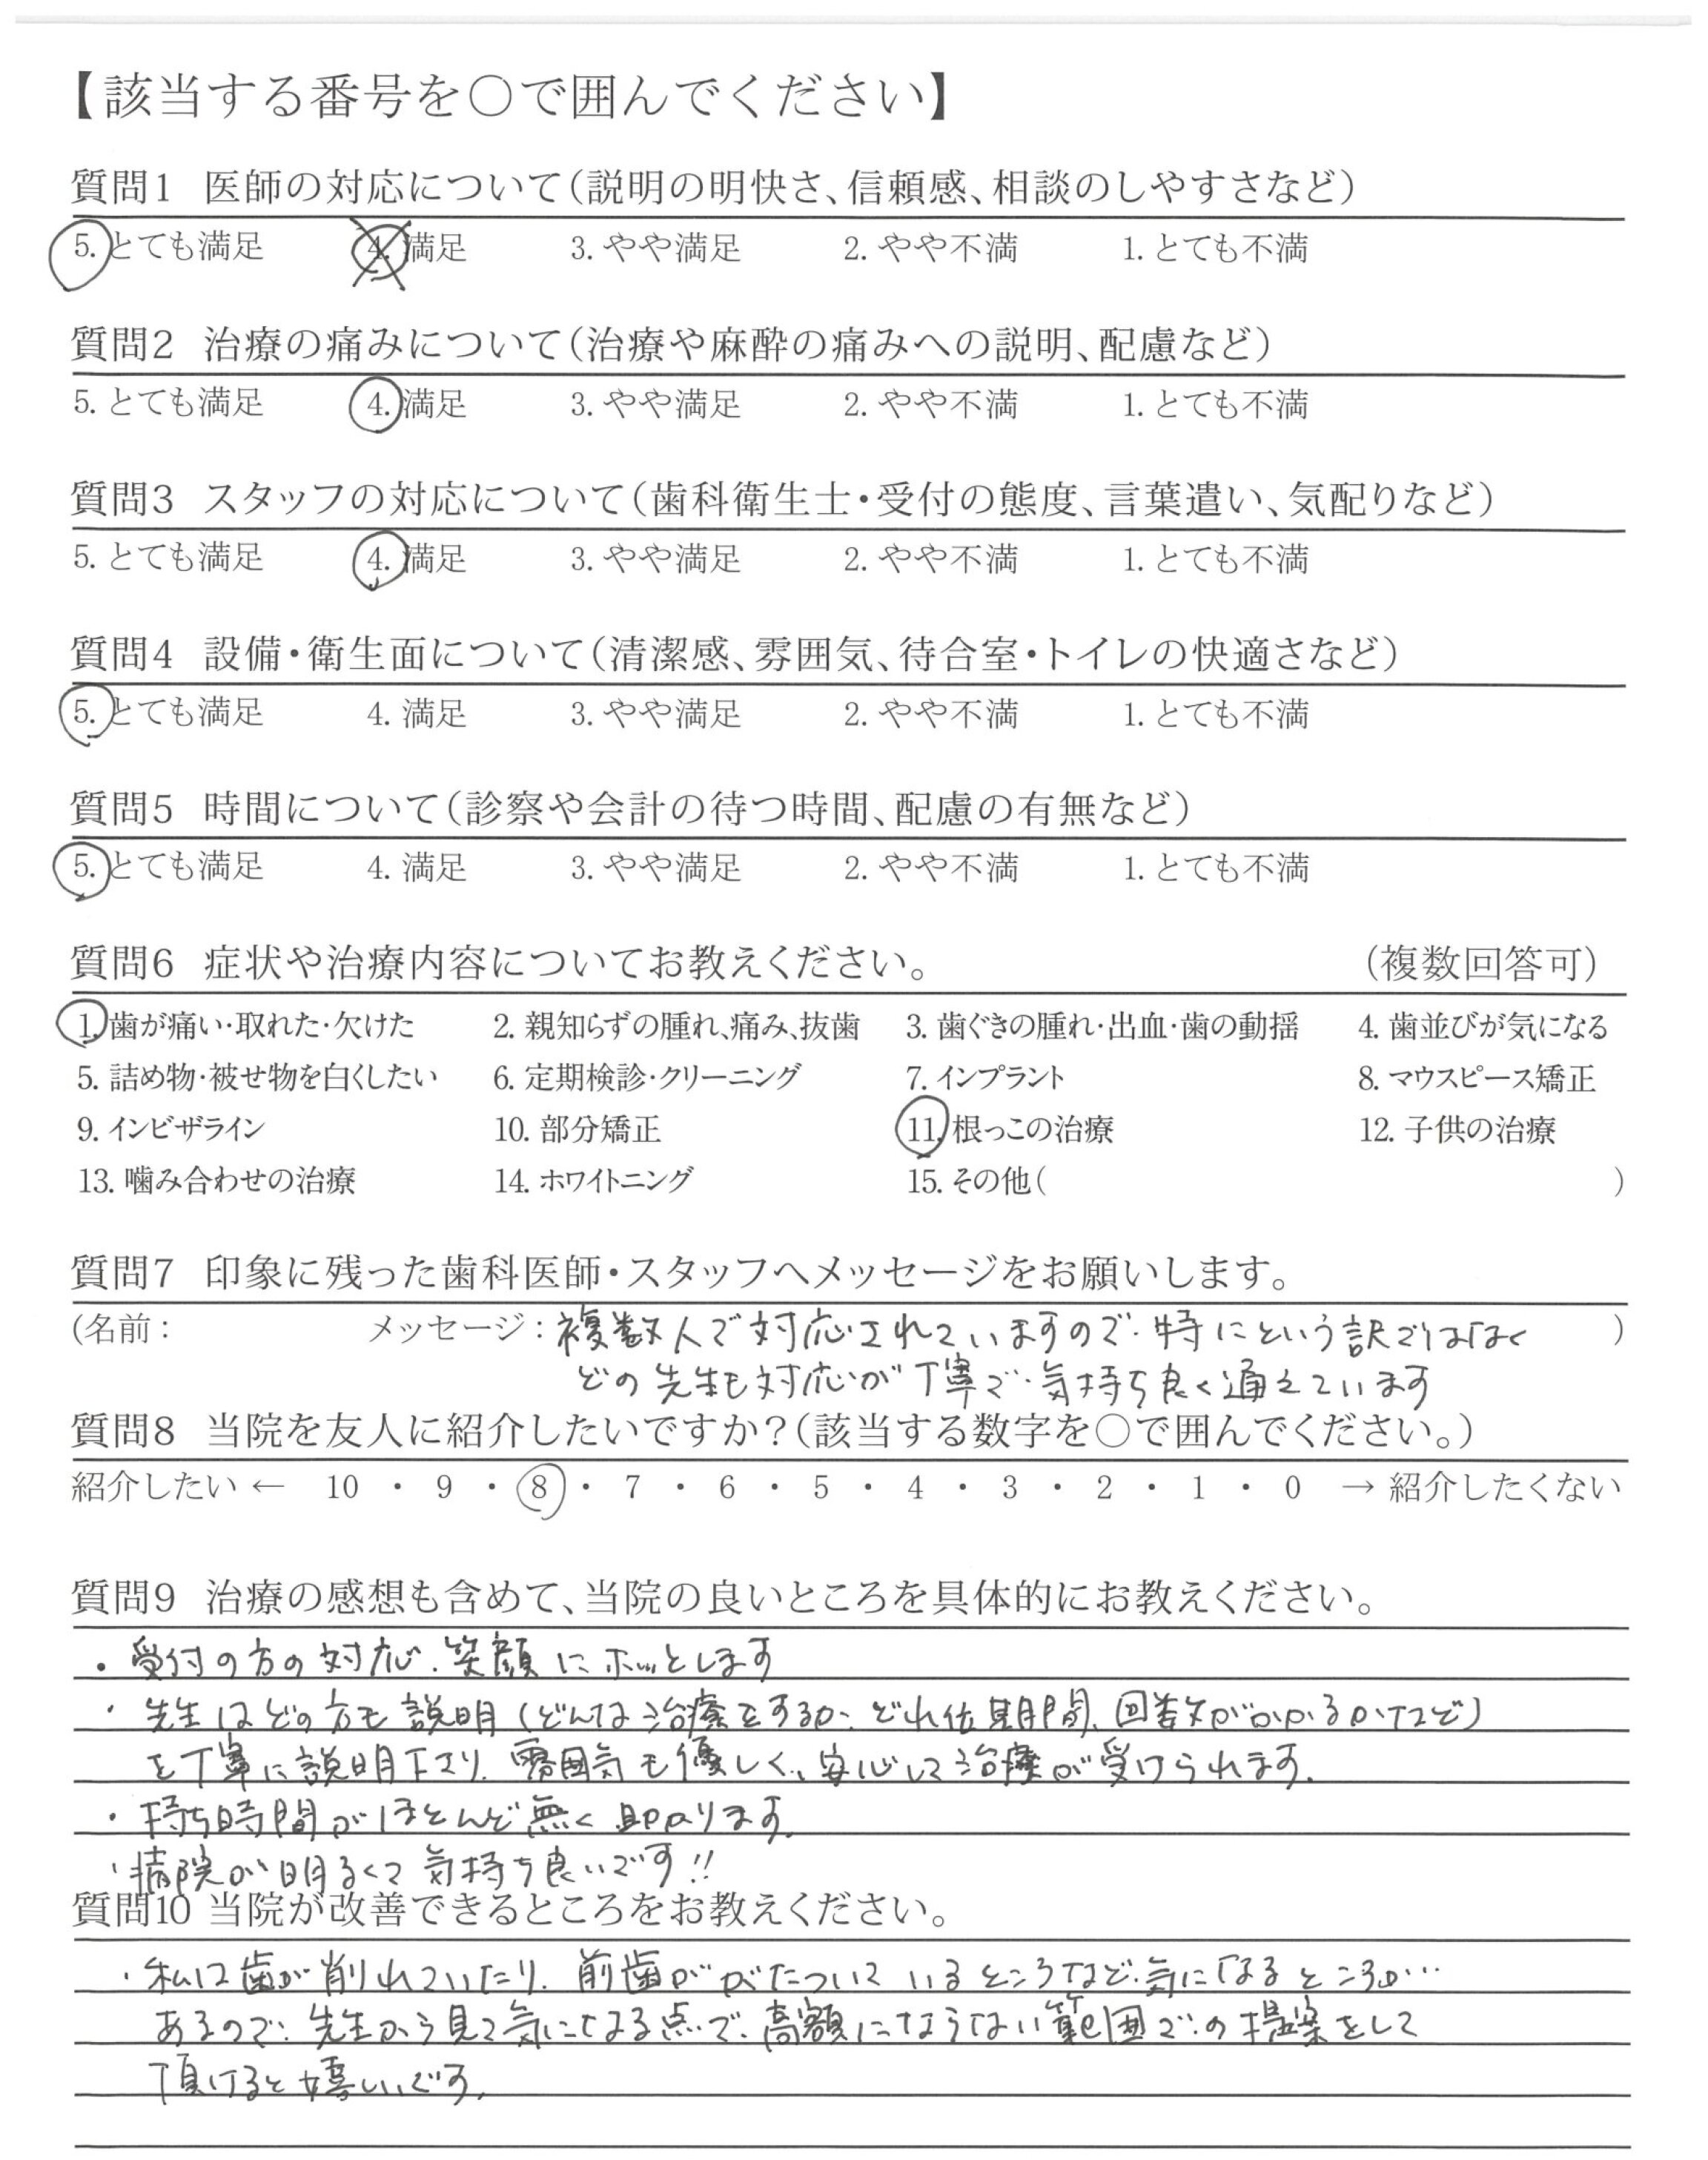 【該当する番号を○で囲んでください】
質問1 医師の対応について(説明の明快さ、信頼感、相談のしやすさなど)
5. とても満足 4. 満足 3. やや満足 2. やや不満 1. とても不満
質問2 治療の痛みについて(治療や麻酔の痛みへの説明、配慮など)
5. とても満足 4. 満足 3. やや満足 2. やや不満 1. とても不満
質問3 スタッフの対応について(歯科衛生士・受付の態度、言葉遣い、気配りなど)
5. とても満足 4. 満足 3. やや満足 2. やや不満 1. とても不満
質問4 設備・衛生面について(清潔感、雰囲気、待合室・トイレの快適さなど)
5. とても満足 4. 満足 3. やや満足 2. やや不満 1. とても不満
質問5 時間について(診察や会計の待つ時間、配慮の有無など)
5. とても満足 4. 満足 3. やや満足 2. やや不満 1. とても不満
質問6 症状や治療内容についてお教えください。 (複数回答可)
1. 歯が痛い・取れた・欠けた 2. 親知らずの腫れ、痛み、抜歯 3. 歯ぐきの腫れ・出血・歯の動揺 4. 歯並びが気になる
5. 詰め物・被せ物を白くしたい 6. 定期検診・クリーニング 7. インプラント 8. マウスピース矯正
9. インビザライン 10. 部分矯正 11. 根っこの治療 12. 子供の治療
13. 噛み合わせの治療 14. ホワイトニング 15. その他( )
質問7 印象に残った歯科医師・スタッフへメッセージをお願いします。
(名前: メッセージ:複数人で対応されていますので、特にという訳ではなく )
どの先生も対応が丁寧で、気持ち良く通えています
質問8 当院を友人に紹介したいですか?(該当する数字を○で囲んでください。)
紹介したい ← 10 ・ 9 ・ 8 ・ 7 ・ 6 ・ 5 ・ 4 ・ 3 ・ 2 ・ 1 ・ 0 → 紹介したくない
質問9 治療の感想も含めて、当院の良いところを具体的にお教えください。
・受付の方の対応、笑顔にホッとします
・先生はどの方も説明(どんな治療をするか、どれ位期間、回数がかかるかなど)
を丁寧に説明下さり、雰囲気も優しく、安心して治療が受けられます。
・待ち時間がほとんど無く助かります。
・病院が明るくて気持ち良いです!!
質問10 当院が改善できるところをお教えください。
・私は歯が削れていたり、前歯ががたついているところなど、気になるところが…
あるので、先生から見て気になる点で、高額にならない範囲での提案をして
頂けると嬉しいです。